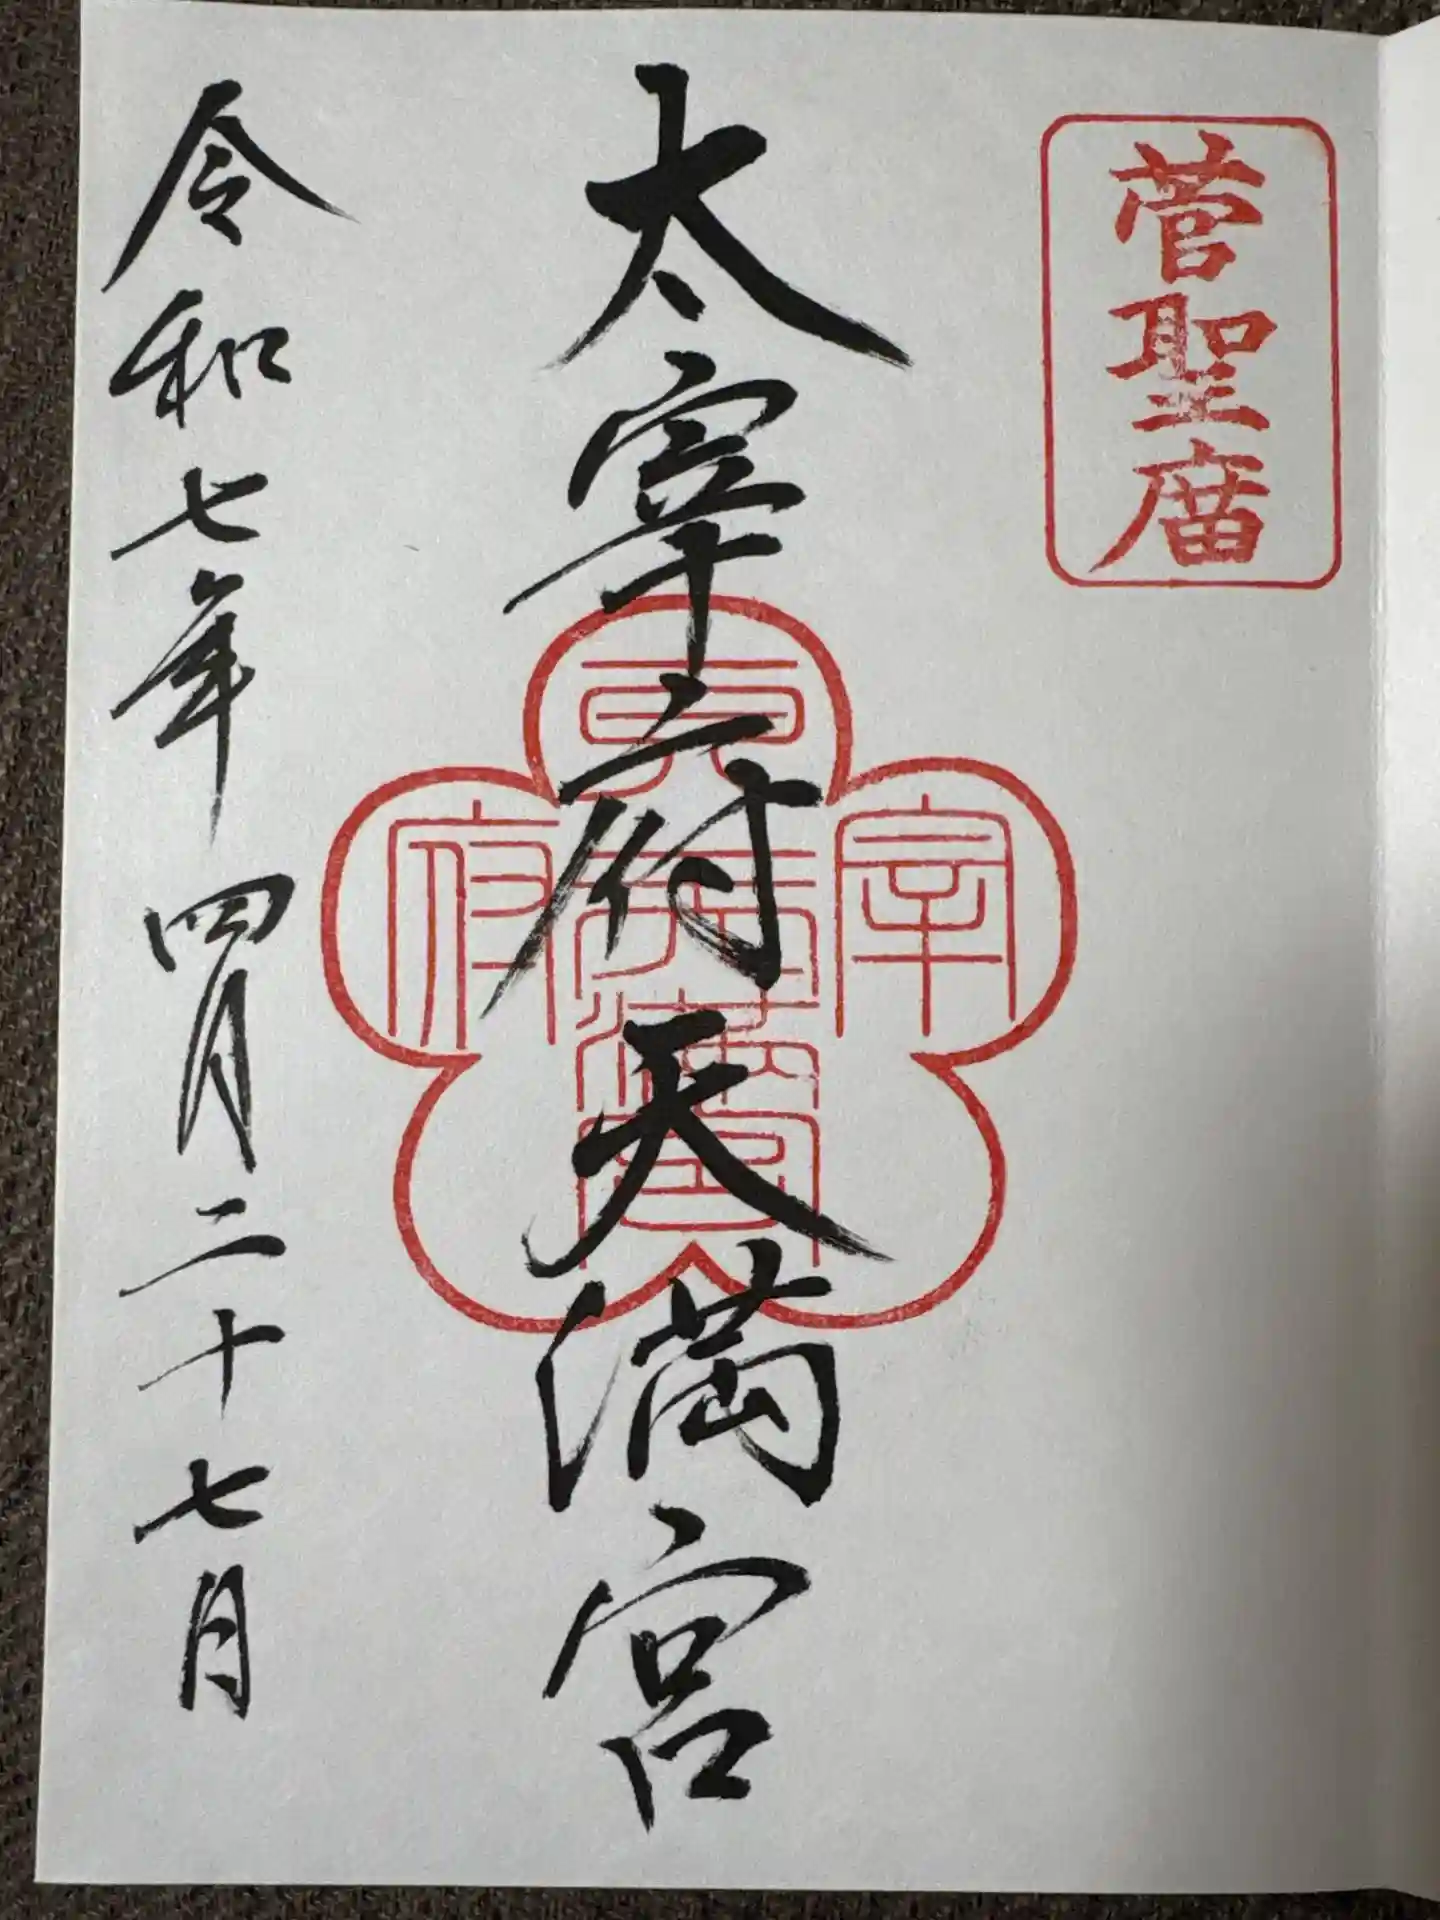 菅聖庿
太宰府天満宮
令和七年四月二十七日
宰
府
天満宮